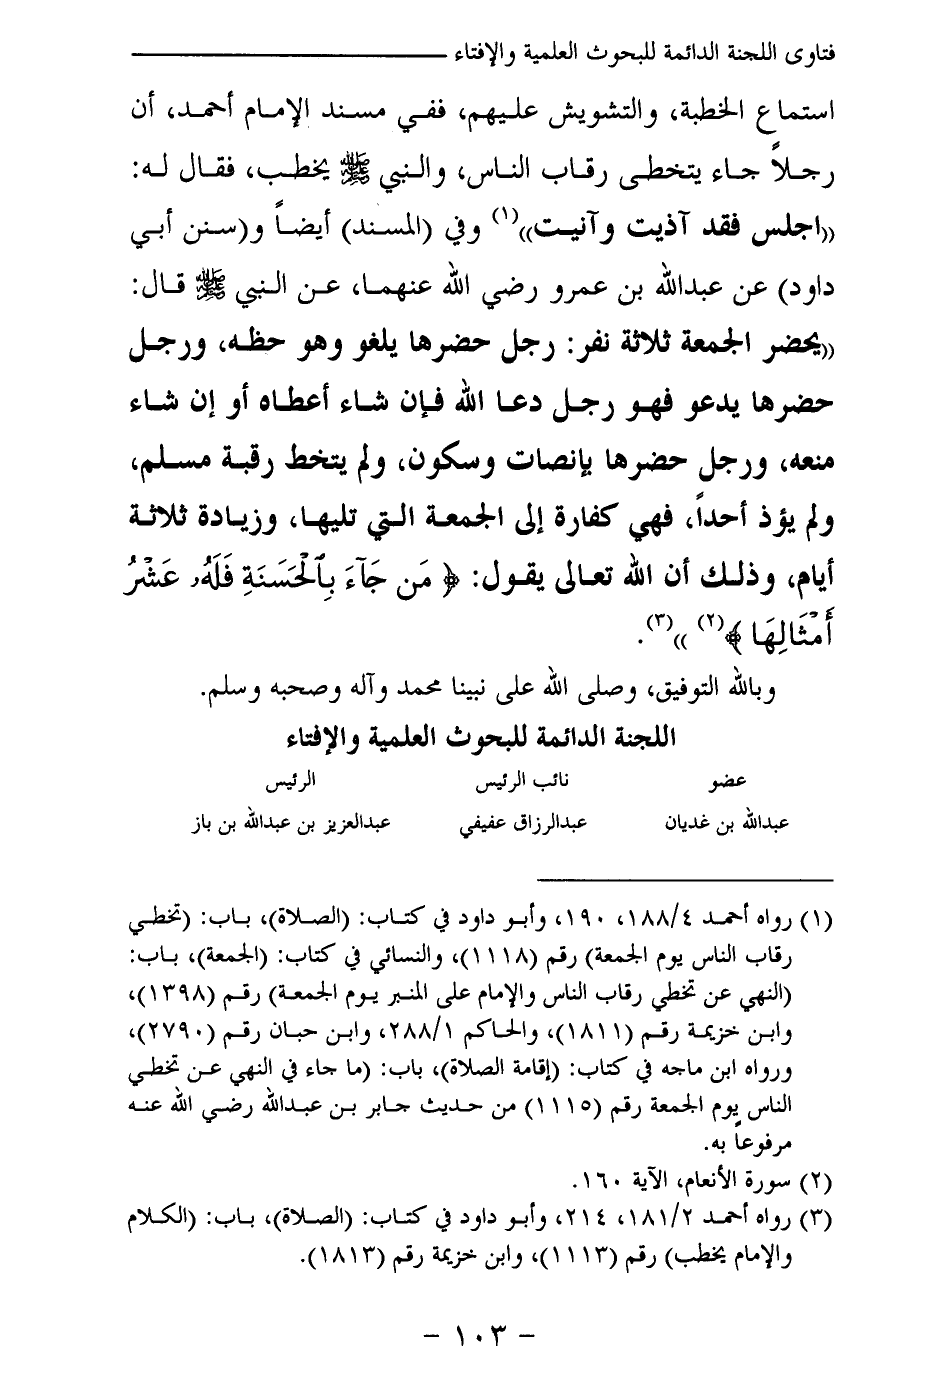 فتاوى اللجنة الدائمة للبحوث العلمية والإفتاء
استماع الخطبة، والتشويش عليهم، ففي مسند الإمام أحمد، أن
رجلاً جاء يتخطى رقاب الناس، والنبي ﷺ يخطب، فقال له:
((اجلس فقد آذيت وآنيت))(١) وفي (المسند) أيضاً و(سنن أبي
داود) عن عبدالله بن عمرو رضي الله عنهما، عن النبي ﷺ قال:
((يحضر الجمعة ثلاثة نفر: رجل حضرها يلغو وهو حظه، ورجل
حضرها يدعو فهو رجل دعا الله فإن شاء أعطاه أو إن شاء
منعه، ورجل حضرها بإنصات وسكون، ولم يتخط رقبة مسلم،
ولم يؤذ أحداً، فهي كفارة إلى الجمعة التي تليها، وزيادة ثلاثة
أيام، وذلك أن الله تعالى يقول: ﴿ مَن جَآءَ بِٱلْحَسَنَةِ فَلَهُۥ عَشْرُ
أَمْثَالِهَا ﴾(٢) ))(٣).
وبالله التوفيق، وصلى الله على نبينا محمد وآله وصحبه وسلم.
اللجنة الدائمة للبحوث العلمية والإفتاء
عضو نائب الرئيس الرئيس
عبدالله بن غديان عبدالرزاق عفيفي عبدالعزيز بن عبدالله بن باز
(١) رواه أحمد ١٨٨/٤، ١٩٠، وأبو داود في كتاب: (الصلاة)، باب: (تخطي
رقاب الناس يوم الجمعة) رقم (١١١٨)، والنسائي في كتاب: (الجمعة)، باب:
(النهي عن تخطي رقاب الناس والإمام على المنبر يوم الجمعة) رقم (١٣٩٨)،
وابن خزيمة رقم (١٨١١)، والحاكم ٢٨٨/١، وابن حبان رقم (٢٧٩٠)،
ورواه ابن ماجه في كتاب: (إقامة الصلاة)، باب: (ما جاء في النهي عن تخطي
الناس يوم الجمعة رقم (١١١٥) من حديث جابر بن عبدالله رضي الله عنه
مرفوعاً به.
(٢) سورة الأنعام، الآية ١٦٠.
(٣) رواه أحمد ١٨١/٢، ٢١٤، وأبو داود في كتاب: (الصلاة)، باب: (الكلام
والإمام يخطب) رقم (١١١٣)، وابن خزيمة رقم (١٨١٣).
- ١٠٣ -